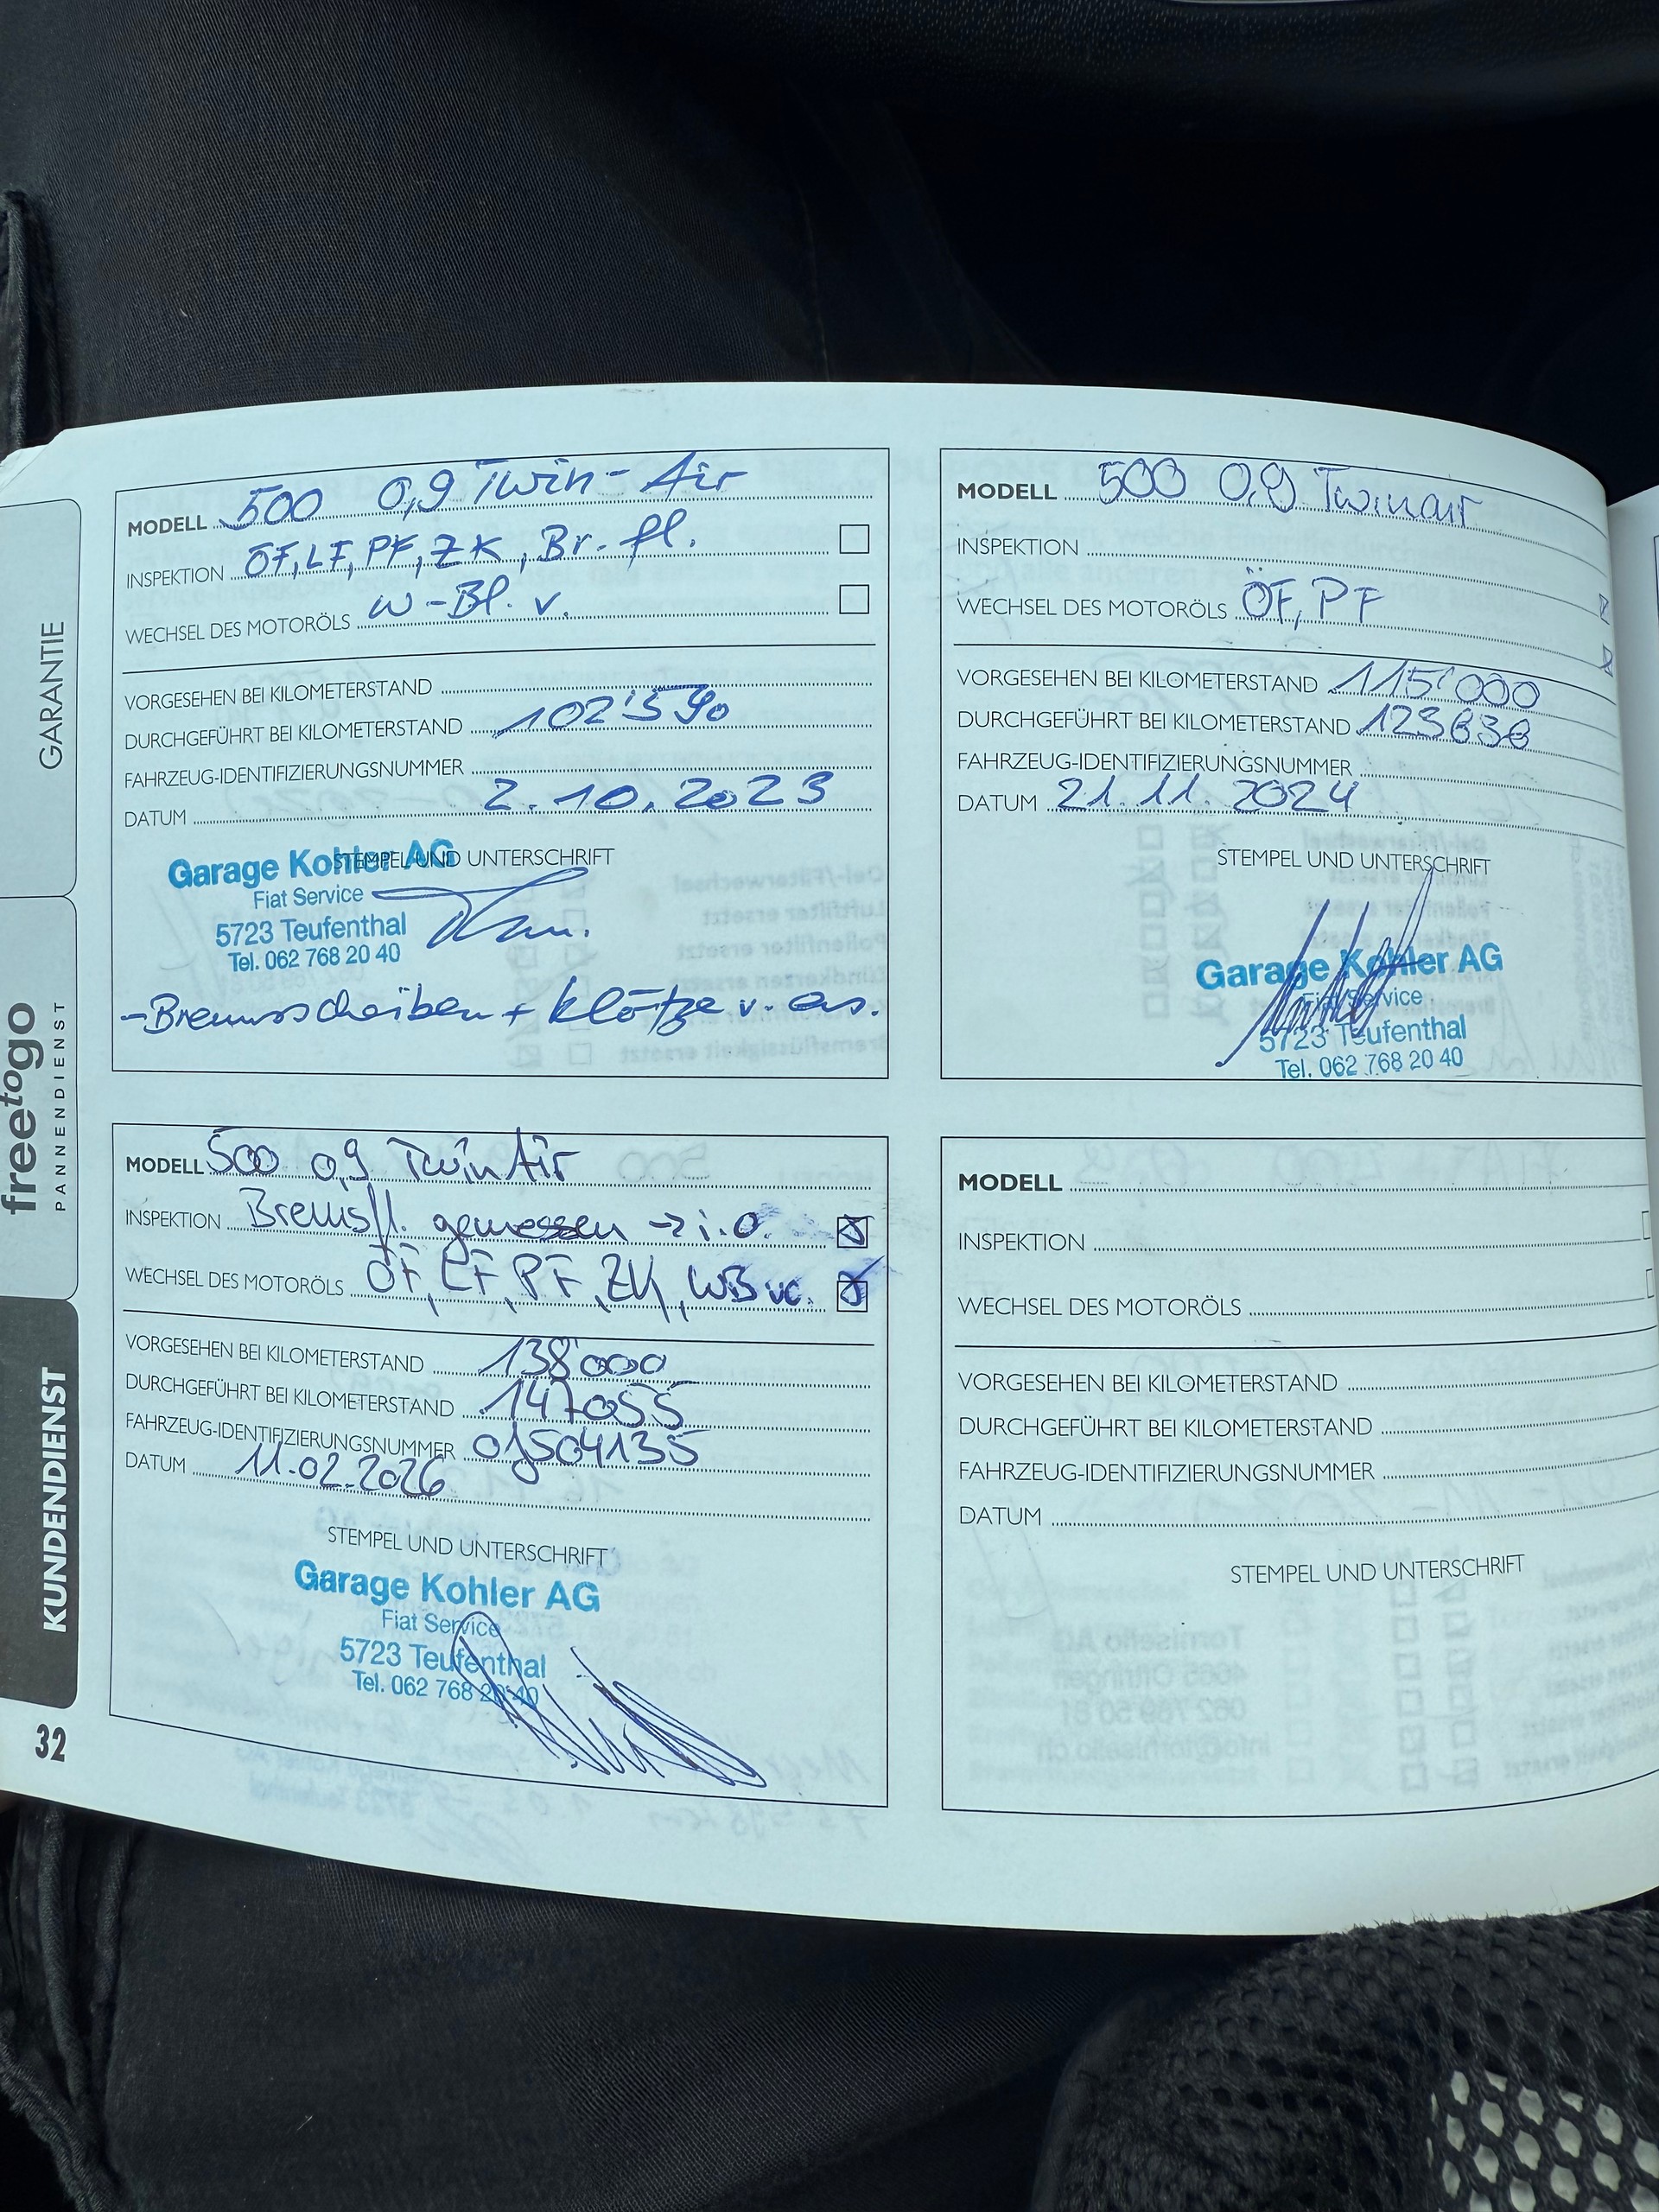 GARANTIE
freetogo
PANNENDIENST
KUNDENDIENST
32
MODELL 500 0,9 Twin-Air
INSPEKTION ÖF, LF, PF, ZK, Br. fl.
WECHSEL DES MOTORÖLS W-Bl. v.
VORGESEHEN BEI KILOMETERSTAND
DURCHGEFÜHRT BEI KILOMETERSTAND 102'590
FAHRZEUG-IDENTIFIZIERUNGSNUMMER
DATUM 2.10.2023
STEMPEL UND UNTERSCHRIFT
Garage Kohler AG
Fiat Service
5723 Teufenthal
Tel. 062 768 20 40
- Bremsscheiben + klötze v. ers.
MODELL 500 0,9 Twinair
INSPEKTION
WECHSEL DES MOTORÖLS ÖF, PF
VORGESEHEN BEI KILOMETERSTAND 115'000
DURCHGEFÜHRT BEI KILOMETERSTAND
FAHRZEUG-IDENTIFIZIERUNGSNUMMER
DATUM 21.11.2024
STEMPEL UND UNTERSCHRIFT
Garage Kohler AG
Fiat Service
5723 Teufenthal
Tel. 062 768 20 40
MODELL 500 0,9 TwinAir
INSPEKTION Bremsfl. gemessen -> i.O.
WECHSEL DES MOTORÖLS ÖF, LF, PF, ZK, WB vo.
VORGESEHEN BEI KILOMETERSTAND 138'000
DURCHGEFÜHRT BEI KILOMETERSTAND 147055
FAHRZEUG-IDENTIFIZIERUNGSNUMMER 01504135
DATUM 11.02.2026
STEMPEL UND UNTERSCHRIFT
Garage Kohler AG
Fiat Service
5723 Teufenthal
Tel. 062 768 20 40
MODELL
INSPEKTION
WECHSEL DES MOTORÖLS
VORGESEHEN BEI KILOMETERSTAND
DURCHGEFÜHRT BEI KILOMETERSTAND
FAHRZEUG-IDENTIFIZIERUNGSNUMMER
DATUM
STEMPEL UND UNTERSCHRIFT